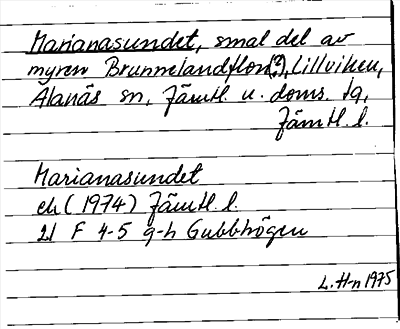 Marianasundet, smal del av
myren Brunnelandflon(?), Lillviken,
Alanäs sn, Jämtl. n. doms. tg,
Jämtl. l.
Marianasundet
ek (1974) Jämtl. l.
21 F 4-5 g-h Gubbhögen
L. H-n 1975